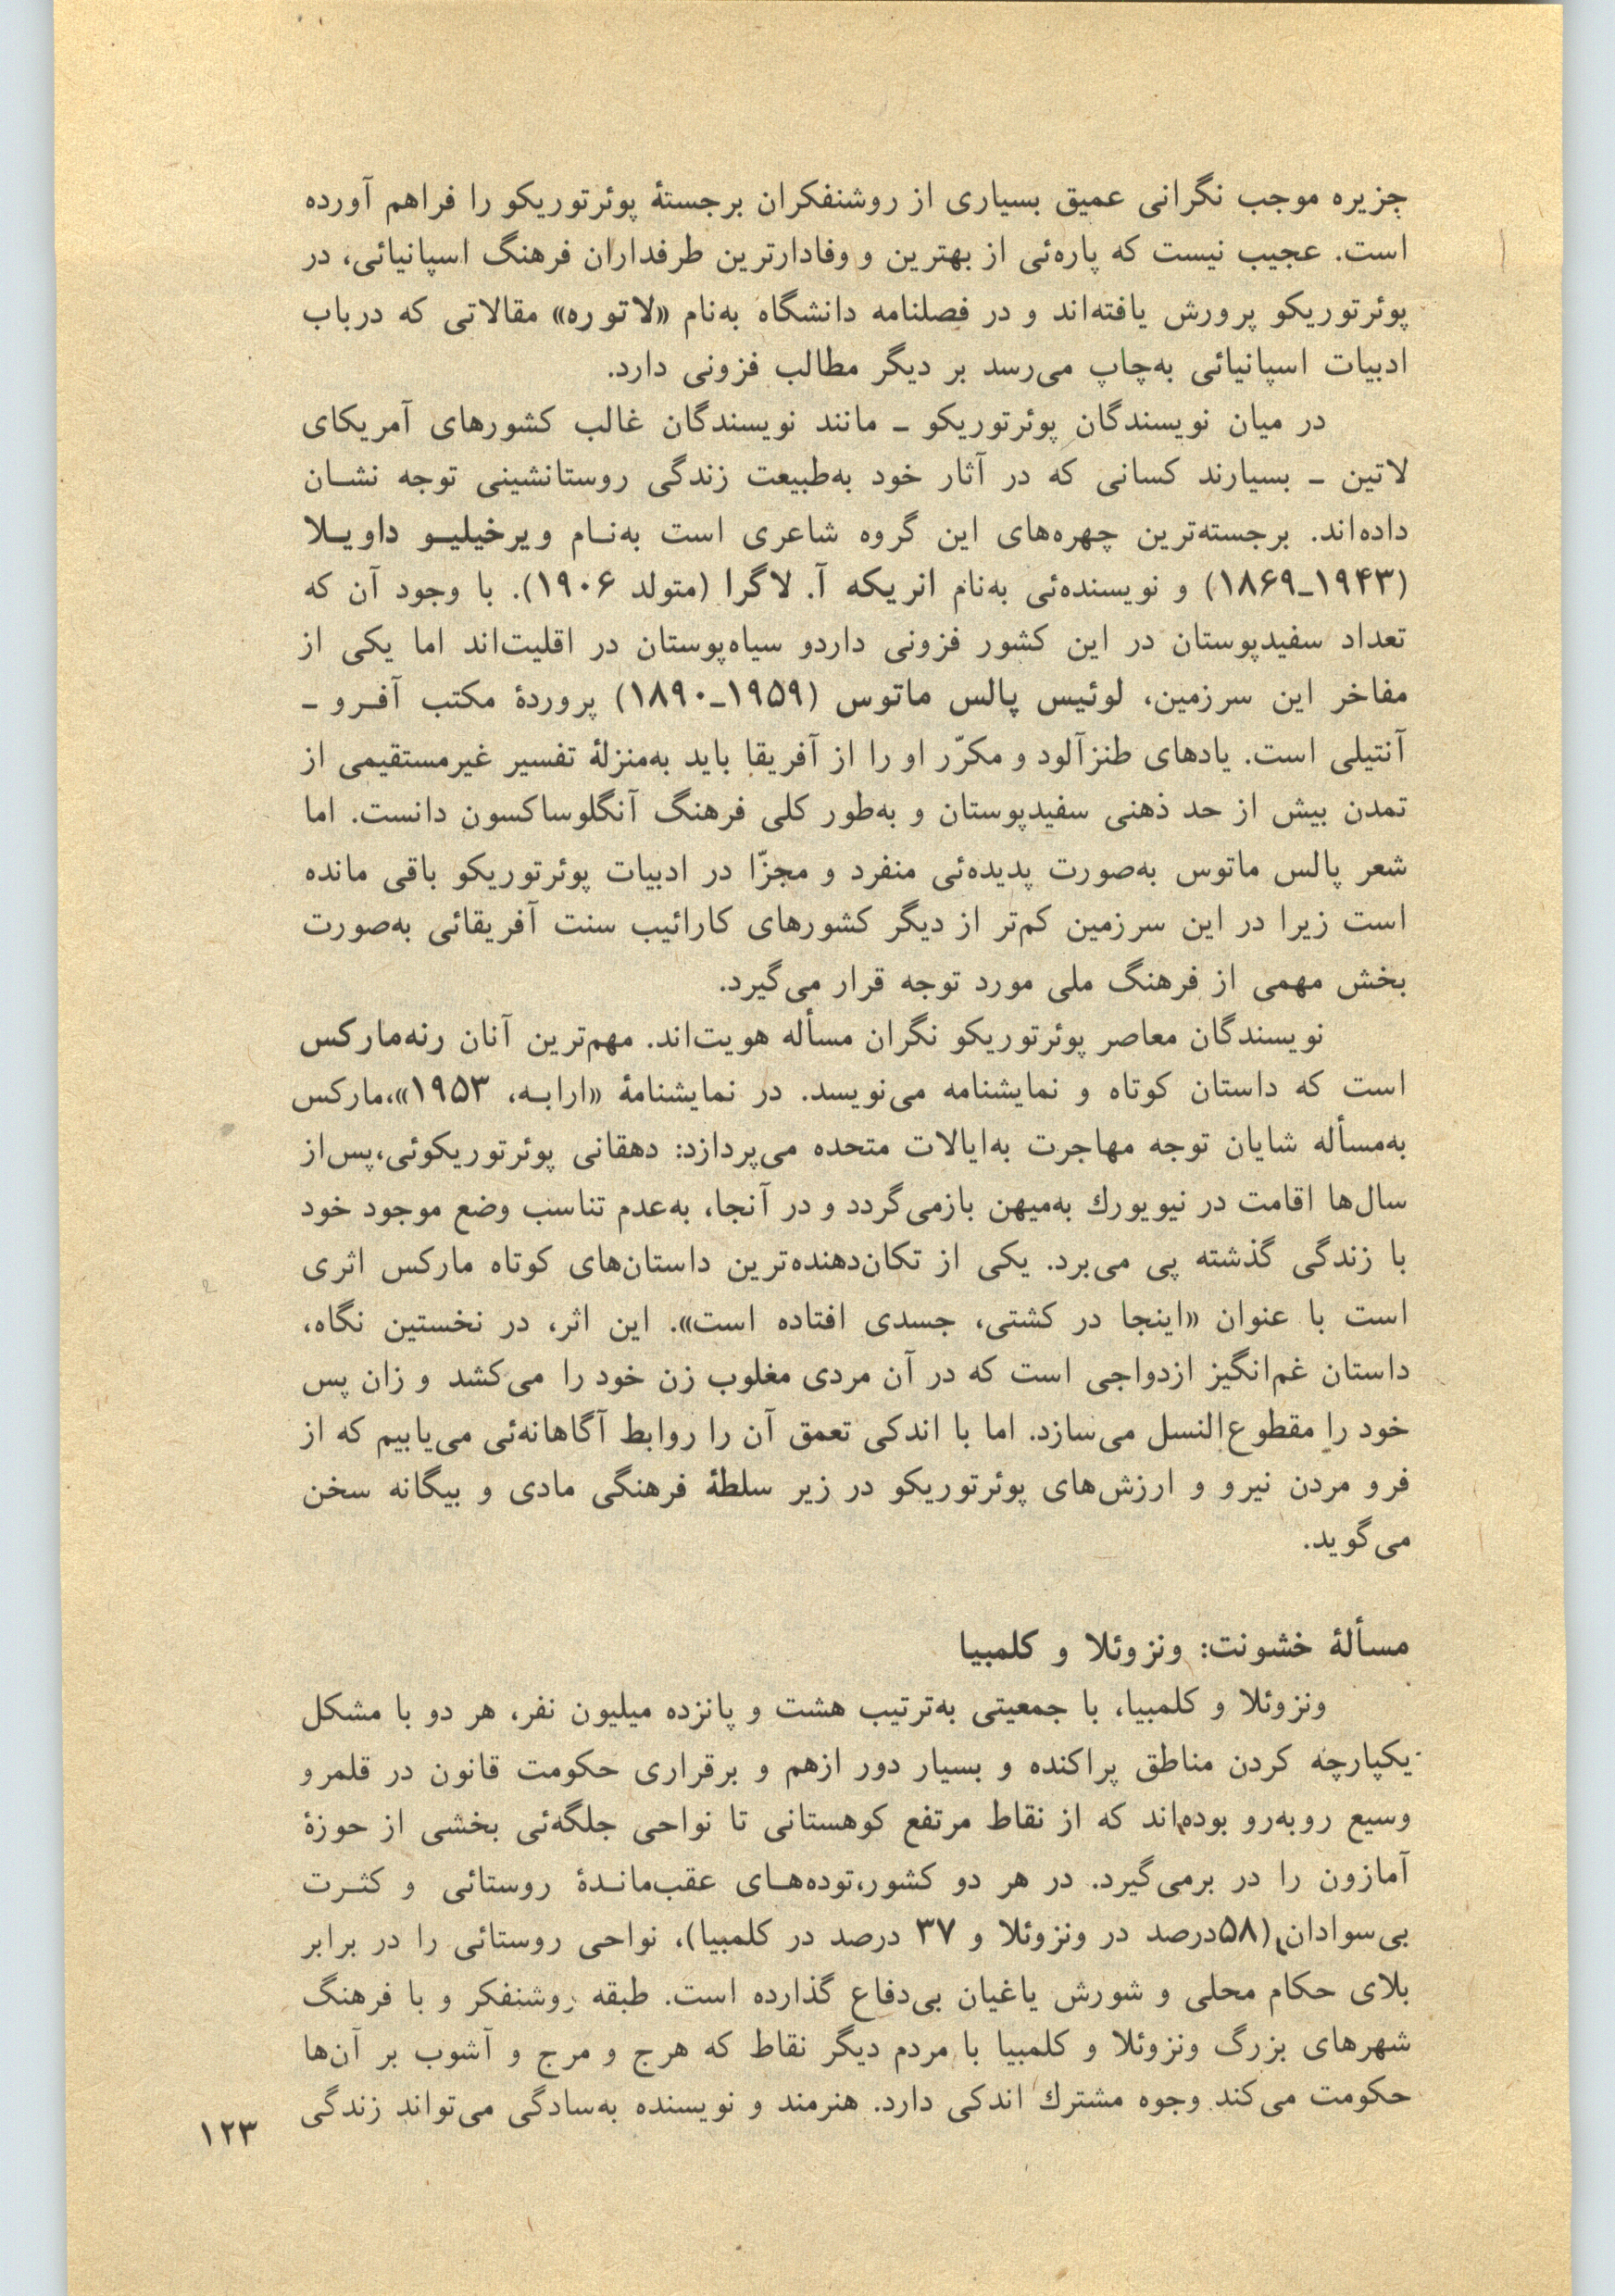 جزیره موجب نگرانی عمیق بسیاری از روشنفکران برجستهٔ پوئرتوریکو را فراهم آورده
است. عجیب نیست که پاره‌ئی از بهترین و وفادارترین طرفداران فرهنگ اسپانیائی، در
پوئرتوریکو پرورش یافته‌اند و در فصلنامه دانشگاه به‌نام «لاتوره» مقالاتی که درباب
ادبیات اسپانیائی به‌چاپ می‌رسد بر دیگر مطالب فزونی دارد.
در میان نویسندگان پوئرتوریکو ـ مانند نویسندگان غالب کشورهای آمریکای
لاتین ـ بسیارند کسانی که در آثار خود به‌طبیعت زندگی روستانشینی توجه نشـان
داده‌اند. برجسته‌ترین چهره‌های این گروه شاعری است به‌نـام ویرخیلیـو داویـلا
(۱۹۴۳ـ۱۸۶۹) و نویسنده‌ئی به‌نام انریکه آ. لاگرا (متولد ۱۹۰۶). با وجود آن که
تعداد سفیدپوستان در این کشور فزونی داردو سیاه‌پوستان در اقلیت‌اند اما یکی از
مفاخر این سرزمین، لوئیس پالس ماتوس (۱۹۵۹ـ۱۸۹۰) پروردهٔ مکتب آفـرو ـ
آنتیلی است. یادهای طنزآلود و مکرّر او را از آفریقا باید به‌منزلهٔ تفسیر غیرمستقیمی از
تمدن بیش از حد ذهنی سفیدپوستان و به‌طور کلی فرهنگ آنگلوساکسون دانست. اما
شعر پالس ماتوس به‌صورت پدیده‌ئی منفرد و مجزّا در ادبیات پوئرتوریکو باقی مانده
است زیرا در این سرزمین کم‌تر از دیگر کشورهای کارائیب سنت آفریقائی به‌صورت
بخش مهمی از فرهنگ ملی مورد توجه قرار می‌گیرد.
نویسندگان معاصر پوئرتوریکو نگران مسأله هویت‌اند. مهم‌ترین آنان رنه‌مارکس
است که داستان کوتاه و نمایشنامه می‌نویسد. در نمایشنامهٔ «ارابـه، ۱۹۵۳»،مارکس
به‌مسأله شایان توجه مهاجرت به‌ایالات متحده می‌پردازد: دهقانی پوئرتوریکوئی،پس‌از
سال‌ها اقامت در نیویورك به‌میهن بازمی‌گردد و در آنجا، به‌عدم تناسب وضع موجود خود
با زندگی گذشته پی می‌برد. یکی از تکان‌دهنده‌ترین داستان‌های کوتاه مارکس اثری
است با عنوان «اینجا در کشتی، جسدی افتاده است». این اثر، در نخستین نگاه،
داستان غم‌انگیز ازدواجی است که در آن مردی مغلوب زن خود را می‌کشد و زان پس
خود را مقطوع‌النسل می‌سازد. اما با اندکی تعمق آن را روابط آگاهانه‌ئی می‌یابیم که از
فرو مردن نیرو و ارزش‌های پوئرتوریکو در زیر سلطهٔ فرهنگی مادی و بیگانه سخن
می‌گوید.
مسألهٔ خشونت: ونزوئلا و کلمبیا
ونزوئلا و کلمبیا، با جمعیتی به‌ترتیب هشت و پانزده میلیون نفر، هر دو با مشکل
یکپارچه کردن مناطق پراکنده و بسیار دور ازهم و برقراری حکومت قانون در قلمرو
وسیع روبه‌رو بوده‌اند که از نقاط مرتفع کوهستانی تا نواحی جلگه‌ئی بخشی از حوزهٔ
آمازون را در برمی‌گیرد. در هر دو کشور،توده‌هـای عقب‌مانـدهٔ روستائی و کثـرت
بی‌سوادان (۵۸درصد در ونزوئلا و ۳۷ درصد در کلمبیا)، نواحی روستائی را در برابر
بلای حکام محلی و شورش یاغیان بی‌دفاع گذارده است. طبقه روشنفکر و با فرهنگ
شهرهای بزرگ ونزوئلا و کلمبیا با مردم دیگر نقاط که هرج و مرج و آشوب بر آن‌ها
حکومت می‌کند وجوه مشترك اندکی دارد. هنرمند و نویسنده به‌سادگی می‌تواند زندگی
۱۲۳